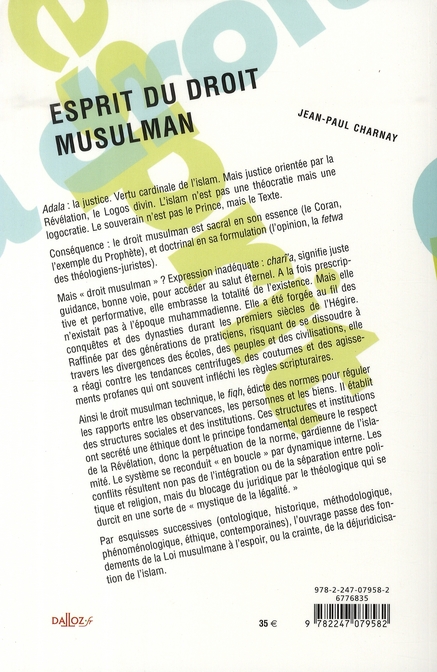 ESPRIT DU DROIT
MUSULMAN
JEAN-PAUL CHARNAY
Adala : la justice. Vertu cardinale de l'islam. Mais justice orientée par la
Révélation, le Logos divin. L'islam n'est pas une théocratie mais une
logocratie. Le souverain n'est pas le Prince, mais le Texte.
Conséquence : le droit musulman est sacral en son essence (le Coran,
l'exemple du Prophète), et doctrinal en sa formulation (l'opinion, la fetwa
des théologiens-juristes).
Mais « droit musulman » ? Expression inadéquate : charî'a, signifie juste
guidance, bonne voie, pour accéder au salut éternel. A la fois prescrip-
tive et performative, elle embrasse la totalité de l'existence. Mais elle
n'existait pas à l'époque muhammadienne. Elle a été forgée au fil des
conquêtes et des dynasties durant les premiers siècles de l'Hégire.
Raffinée par des générations de praticiens, risquant de se dissoudre à
travers les divergences des écoles, des peuples et des civilisations, elle
a réagi contre les tendances centrifuges des coutumes et des agisse-
ments profanes qui ont souvent infléchi les règles scripturaires.
Ainsi le droit musulman technique, le fiqh, édicte des normes pour réguler
les rapports entre les observances, les personnes et les biens. Il établit
des structures sociales et des institutions. Ces structures et institutions
ont secrété une éthique dont le principe fondamental demeure le respect
de la Révélation, donc la perpétuation de la norme, gardienne de l'isla-
mité. Le système se reconduit « en boucle » par dynamique interne. Les
conflits résultent non pas de l'intégration ou de la séparation entre poli-
tique et religion, mais du blocage du juridique par le théologique qui se
durcit en une sorte de « mystique de la légalité. »
Par esquisses successives (ontologique, historique, méthodologique,
phénoménologique, éthique, contemporaines), l'ouvrage passe des fon-
dements de la Loi musulmane à l'espoir, ou la crainte, de la déjuridicisa-
tion de l'islam.
978-2-247-07958-2
6776835
DALLOZ.fr
35 €
9 782247 079582